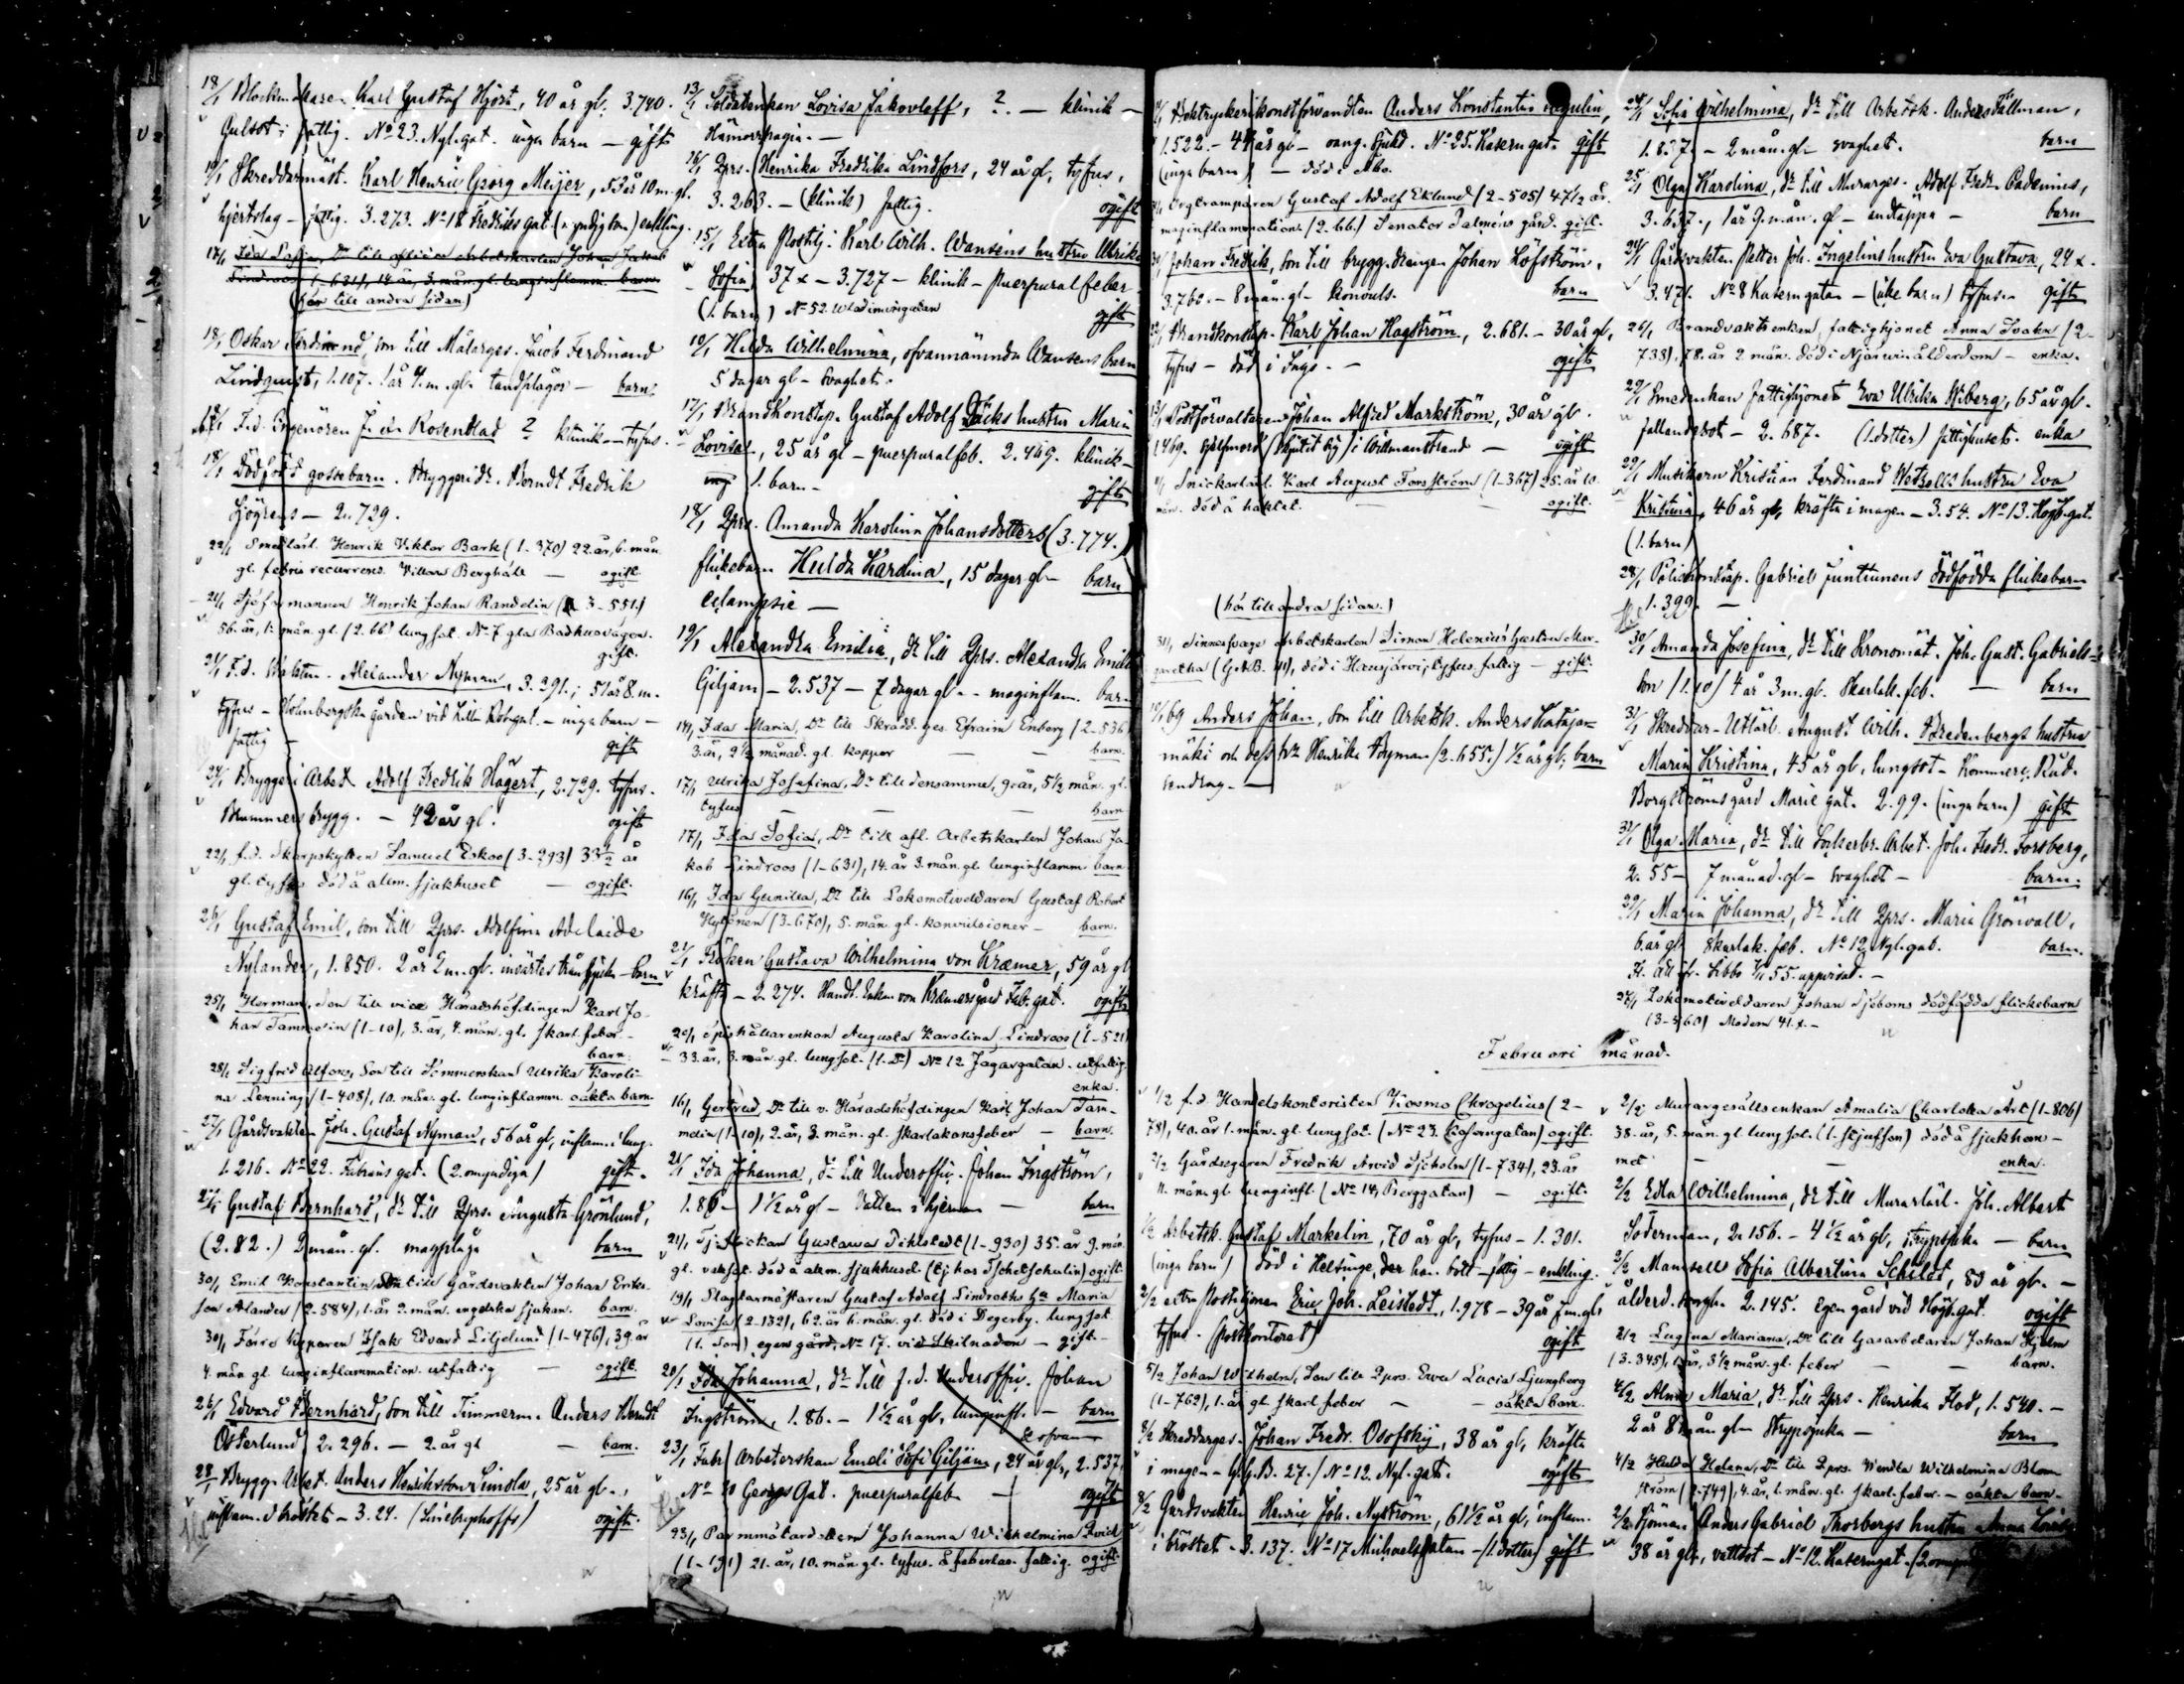 18/1 Blockmakaren Karl Gustaf Hjort, 40 år gl. 3.740.
Gulsot; fattig. No 23. Nyl.gat. inga barn – gift
18/1 Skreddarmäst. Karl Henric Georg Meijer, 53 år 10 m. gl.
hjertslag – fattig. 3.273. No 18 Fredriks gat. enkling.
17/1 Ida Sofia, Dr till aflidne Arbetskarlen Johan Jakob
Lindroos (1–631), 14. år, 3. mån. gl. lunginflamm. barn
(hör till andra sidan)
18/1 Oskar Ferdinand, son till Målarges. Jacob Ferdinand
Lindquist, 1.107. 1 år 4. m. gl. tandplågor – barn
F.d. Ingenören Rosenblad ? klinik – tyfus.
18/1 Dödfödt gossebarn. Bryggeridr. Berndt Fredrik
Högrens – 2.729.
22/1 Smedlärl. Henrik Viktor Bark (1–370) 22. år, 6. mån.
gl. febris recurrens. Villan Berghäll – ogift
21/1 Sjöfarmannen Henrik Johan Randelin (3–551)
56. år, 1. mån. gl. (2. bb) lungsot. No 7 gla Badhusvägen.
gift.
21/1 F.d. Alexander Nyman, 3.291.; 51 år 8. m.
tyfus – Holmbergska gården vid Lilla Robgat. – inga barn –
fattig – gift
24/1 Bryggeri Arbet. Adolf Fredrik Hägert, 2.729. tyfus.
brygg. – 42 år gl. ogift
22/1 f.d. Skarpskytten Samuel Eskoo (3–293) 33 1/2 år
gl. tyfus död å allm. sjukhuset – ogift.
26/1 Gustaf Emil, son till Qprs. Adolfina Adelaide
Nylander, 1.850. 2 år 2 m. gl. barn
25/1 Herman, son till vice Häradshöfdingen Karl Jo-
han Tammelin (1–10), 3. år, 4. mån. gl. skarl. feber –
barn.
28/1 Sigfrid Alfons, son till Sömmerskan Ulrika Karoli-
na Lenning (1–408), 10. mån. gl. lunginflamm. oäkta barn.
27/1 Gårdsvakten Joh. Gustaf Nyman, 56 år gl, inflam. i lung.
1.216. No 22. Fabians gat. (2. omyndiga) gift.
27/1 Gustaf Bernhard, dr till Qprs. Augusta Grönlund,
(2.82.) 2 mån. gl. magplåga barn
30/1 Emil Konstantin, Son till Gårdsvakten Johan Eriks-
son Alander (2.584), 1. år 2. mån. engelska sjukan. barn.
30/1 Färre Kypparen Isak Edvard Liljelund (1–476), 39. år
4. mån. gl. lunginflammation. utfattig – ogift.
26/1 Edvard Bernhard, son till Timmerm. Anders Berndt
Österlund 2.296. – 2. år gl – barn.
28/1 Brygg. Arbet. Anders Henriksson Simola, 25 år gl.,
inflam. i bröstet – 3.24. (Sinebrychoffs) ogift.
13/1 Soldatenkan Lovisa Jakovleff, ? – klinik –
Hämorrhagia. –
16/1 Qprs. Henrika Fredrika Lindfors, 24 år gl, tyfus,
3.263. – (klinik) fattig. ogift
15/1 Extra Postilj. Karl Wilh. Wanséns hustru Ulrika
Sofia, 37 – 3.727 – klinik – puerpuralfeber –
(1. barn) No 52 Wladimirsgatan gift
10/1 Hilda Wilhelmina, ofvannämnda Wansens barn
5 dagar gl – Svaghet.
17/1 BrandKonstap. Gustaf Adolf Säcks hustru Maria
Lovisa, 25 år gl – puerpuralfeb. 2.449. klinik –
1. barn – gift
18/1 Qprs. Amanda Karolina Johansdotters (3.774.)
flickebarn Hulda Karolina, 15 dagar gl – barn
eclampsie –
19/1 Alexandra Emilia, dr till Qprs. Alexandra Emilia
Giljam – 2.537 – 7 dagar gl – maginflam. barn
19/1 Ida Maria, Dr till Skrädd. ges. Efraim Enberg (2–536
3. år, 2 1/2 månad. gl. koppor – barn.
17/1 Ulrika Josefina, Dr till densamme, 9. år, 5 1/2 mån. gl.
tyfus – – barn
17/1 Ida Sofia, Dr till afl. Arbetskarlen Johan Ja-
kob Lindroos (1–631), 14. år 3. mån. gl. lunginflamm. barn
16/1 Ida Gunilla, Dr till Lokomotiveldaren Gustaf Robert
Hytönen (3–670), 5. mån. gl. konvulsioner – barn.
21/1 Fröken Gustava Wilhelmina von Kræmer, 59 år gl
kräfta – 2.274. Handl. Enkan von Kræmers gård Fab. gat. ogift
20/1 Spishållarenkan Augusta Karolina Lindroos (1–521
33. år, 3. mån. gl. lungsot. (1. Dr) No 12 Jägargatan. utfattig.
enka.
16/1 Gertrud, Dr till v. Häradshöfdingen Karl Johan Tam-
melin (1–10), 2. år, 3. mån. gl. skarlakansfeber – barn.
21/1 Ida Johanna, dr till Underoffic. Johan Ingström,
1.86 – 1 1/2 år gl – Vatten i hjernan – barn
21/1 Tj. flickan Gustava Dihlstedt (1–930) 35. år 9. mån.
gl. vattsot. död å alkm. sjukhuset (tj hos Tschetschulin) ogift
19/1 Slagtarmästaren Gustaf Adolf Lindroths Ha Maria
Lovisa (2–132), 62. år 6. mån. gl. död i Degerby. lungsot
(1. son), egen gård, No 17. vid Skilnaden – gift –
20/1 Ida Johanna, dr till f.d. Underoffic. Johan
Ingström, 1.86. – 1 1/2 år gl, lunginfl. – barn
Se ofvan
23/1 Fabr Arbeterskan Emeli Sofi Giljam, 24 år gl, 2.537,
No 20 Georgs Gat. puerpuralfeb – ogift
23/1 Johanna Wilhelmina Qvick
(1–191) 21. år, 10. mån. gl. tyfus. å feberlas. fattig. ogift
Boktryckerikonstförvandten Anders Konstantin
1.522. – 44 år gl – No 25. Kaserngat. gift
(inga barn) – död i Åbo.
Orgtramparen Gustaf Adolf Eklund (2–505) 47 1/2 år.
maginflammation. (2. bb.) Senator Palméns gård. gift.
Johan Fredrik, Son till brygg. drängen Johan Löfström,
3.760. – 8 mån. gl – Convuls. barn
Brandkonstap. Karl Johan Hagström, 2.681. – 30 år gl,
tyfus – död i Ingo. – ogift
13/1 Postförvaltaren Johan Alfred Markström, 30 år gl.
1469. sjelfmord (skjutit sig) i Willmanstrand – ogift
Snickarlärl. Karl August Forsström (1–367) 25. år 10
mån. död å häktet. – – ogift.
(hör till andra sidan.)
31/1 Sinnessvage Arbetskarlen Simon Helenius' hustru Mar-
gretha (G.A.B. 41), död i Hausjärvi, tyfus. fattig – gift.
10/1 69 Anders Johan, Son till Arbetsk. Anders Katajan-
mäki och dess hu Henrika Nyman (2.655.) 1/2 år gl, barn
Februari månad.
1/2 f.d. Handelskontoristen Kosmo Chrogelius (2–
78), 40. år 1. mån. gl. lungsot. (No 23. Kaserngatan) ogift.
2/2 Gårdsegaren Fredrik Arvid Sjöholm (1–734), 23. år
11. mån. gl. lunginfl. (No 14, Berggatan) – ogift.
1/2 Arbetsk. Gustaf Markelin, 70 år gl, tyfus – 1.301.
(inga barn) död i Helsinge, der han bott – fattig – enkling.
2/2 extra Postiljonen Eric Joh. Leistedt, 1.978 – 39 år 7 m. gl,
tyfus. (postkontoret) ogift
5/2 Johan Wilhelm, Son till Qprs. Ewa Lucia Ljungberg
(1–762), 1. år gl. skarl. feber – – oäkta barn.
8/2 Skreddarges. Johan Fredr. Osofskij, 38 år gl, kräfta
i magen – G.G.B. 27. / No 12. Nyl. gat. ogift
8/2 Gårdsvakten Henric Joh. Nyström, 61 1/2 år gl, inflam.
i bröstet. 3.137. No 17 Michaelsgatan – (1. dotter) gift
24/1 Sofia Wilhelmina, dr till Arbetsk. Anders Tallman,
1.837 – 2 mån. gl – svaghet. barn
25/1 Olga Karolina, dr till Murarges. Adolf Fredr. Cadenius,
3.637., 1 år 9. mån. gl – andtäppa – barn
24/1 Gårdsvakten Petter Joh. Ingelins hustru Eva Gustava, 24
3.471. No 8 Kaserngatan – (icke barn) tyfus – gift
26/1 Brandvaktsenkan, fattighjonet Anna (2–
738), 78. år 2 mån. död i ålderdom – enka.
29/1 Smedenkan fattighjonet Eva Ulrika Wiberg, 65 år gl.
fallandesot – 2.687. (1. dotter) fattighuset. enka
29/1 Musikern Kristian Ferdinand Wetzells hustru Eva
Kristina, 46 år gl, kräfta i magen – 3.54. No 13. Högb. gat.
(1. barn)
28/1 Poliskonstap. Gabriel Junttunens dödfödda flickebarn
1.399. –
30/1 Amanda Josefina, dr till Kronomät. Joh. Gust. Gabriels-
son (1.10) 4 år 3 m. gl. skarlak. feb. – barn
31/1 Skreddar-Utlärl. August Wilh. Fredenbergs hustru
Maria Kristina, 45 år gl, lungsot – Kommerc. Råd.
Borgströms gård Marie gat. 2.99. (inga barn) gift
31/1 Olga Maria, dr till Sockerbr. Arbet. Joh. Fredr. Forsberg,
2.55 – 7 månad. gl – svaghet – barn.
29/1 Maria Johanna, dr till Qprs. Maria Grönvall,
6. år gl, skarlak. feb. No 12 Nyl. gat. barn.
27/1 Lokomotiveldaren Johan Sjöboms dödfödda flickebarn
(3–560) Modern 41.
2/2 Murargesällsenkan Amalia Charlotta Art (1–806)
38. år, 5. mån. gl. lungsot. (1. styfson) död å sjukhem-
met – – enka.
2/2 Edla Wilhelmina, dr till Murarlärl. Joh. Albert
Söderman, 2.156. – 4 1/2 år gl, strypsjuka – barn
2/2 Mamsell Sofia Albertina Schildt, 83 år gl. –
ålderd. svagh. 2.145. Egen gård vid Högb. gat. ogift
2/2 Lugina Mariana, Dr till Gasarbetaren Johan Hjelm
(3.345), 1. år, 3 1/2 mån. gl. feber – – barn.
4/2 Alma Maria, dr till Qprs. Henrika Flod, 1.540. –
2 år 8 mån gl – strypsjuka – barn
4/2 Hulda Helena, Dr till Qprs. Wendla Wilhelmina Blom-
ström (2.749), 4. år, 1. mån. gl. skarl. feber. – oäkta barn.
2/2 Sjöman Anders Gabriel Thorbergs hustru Anna Lovisa
38 år gl, vattsot – No 12. Kaserngat.